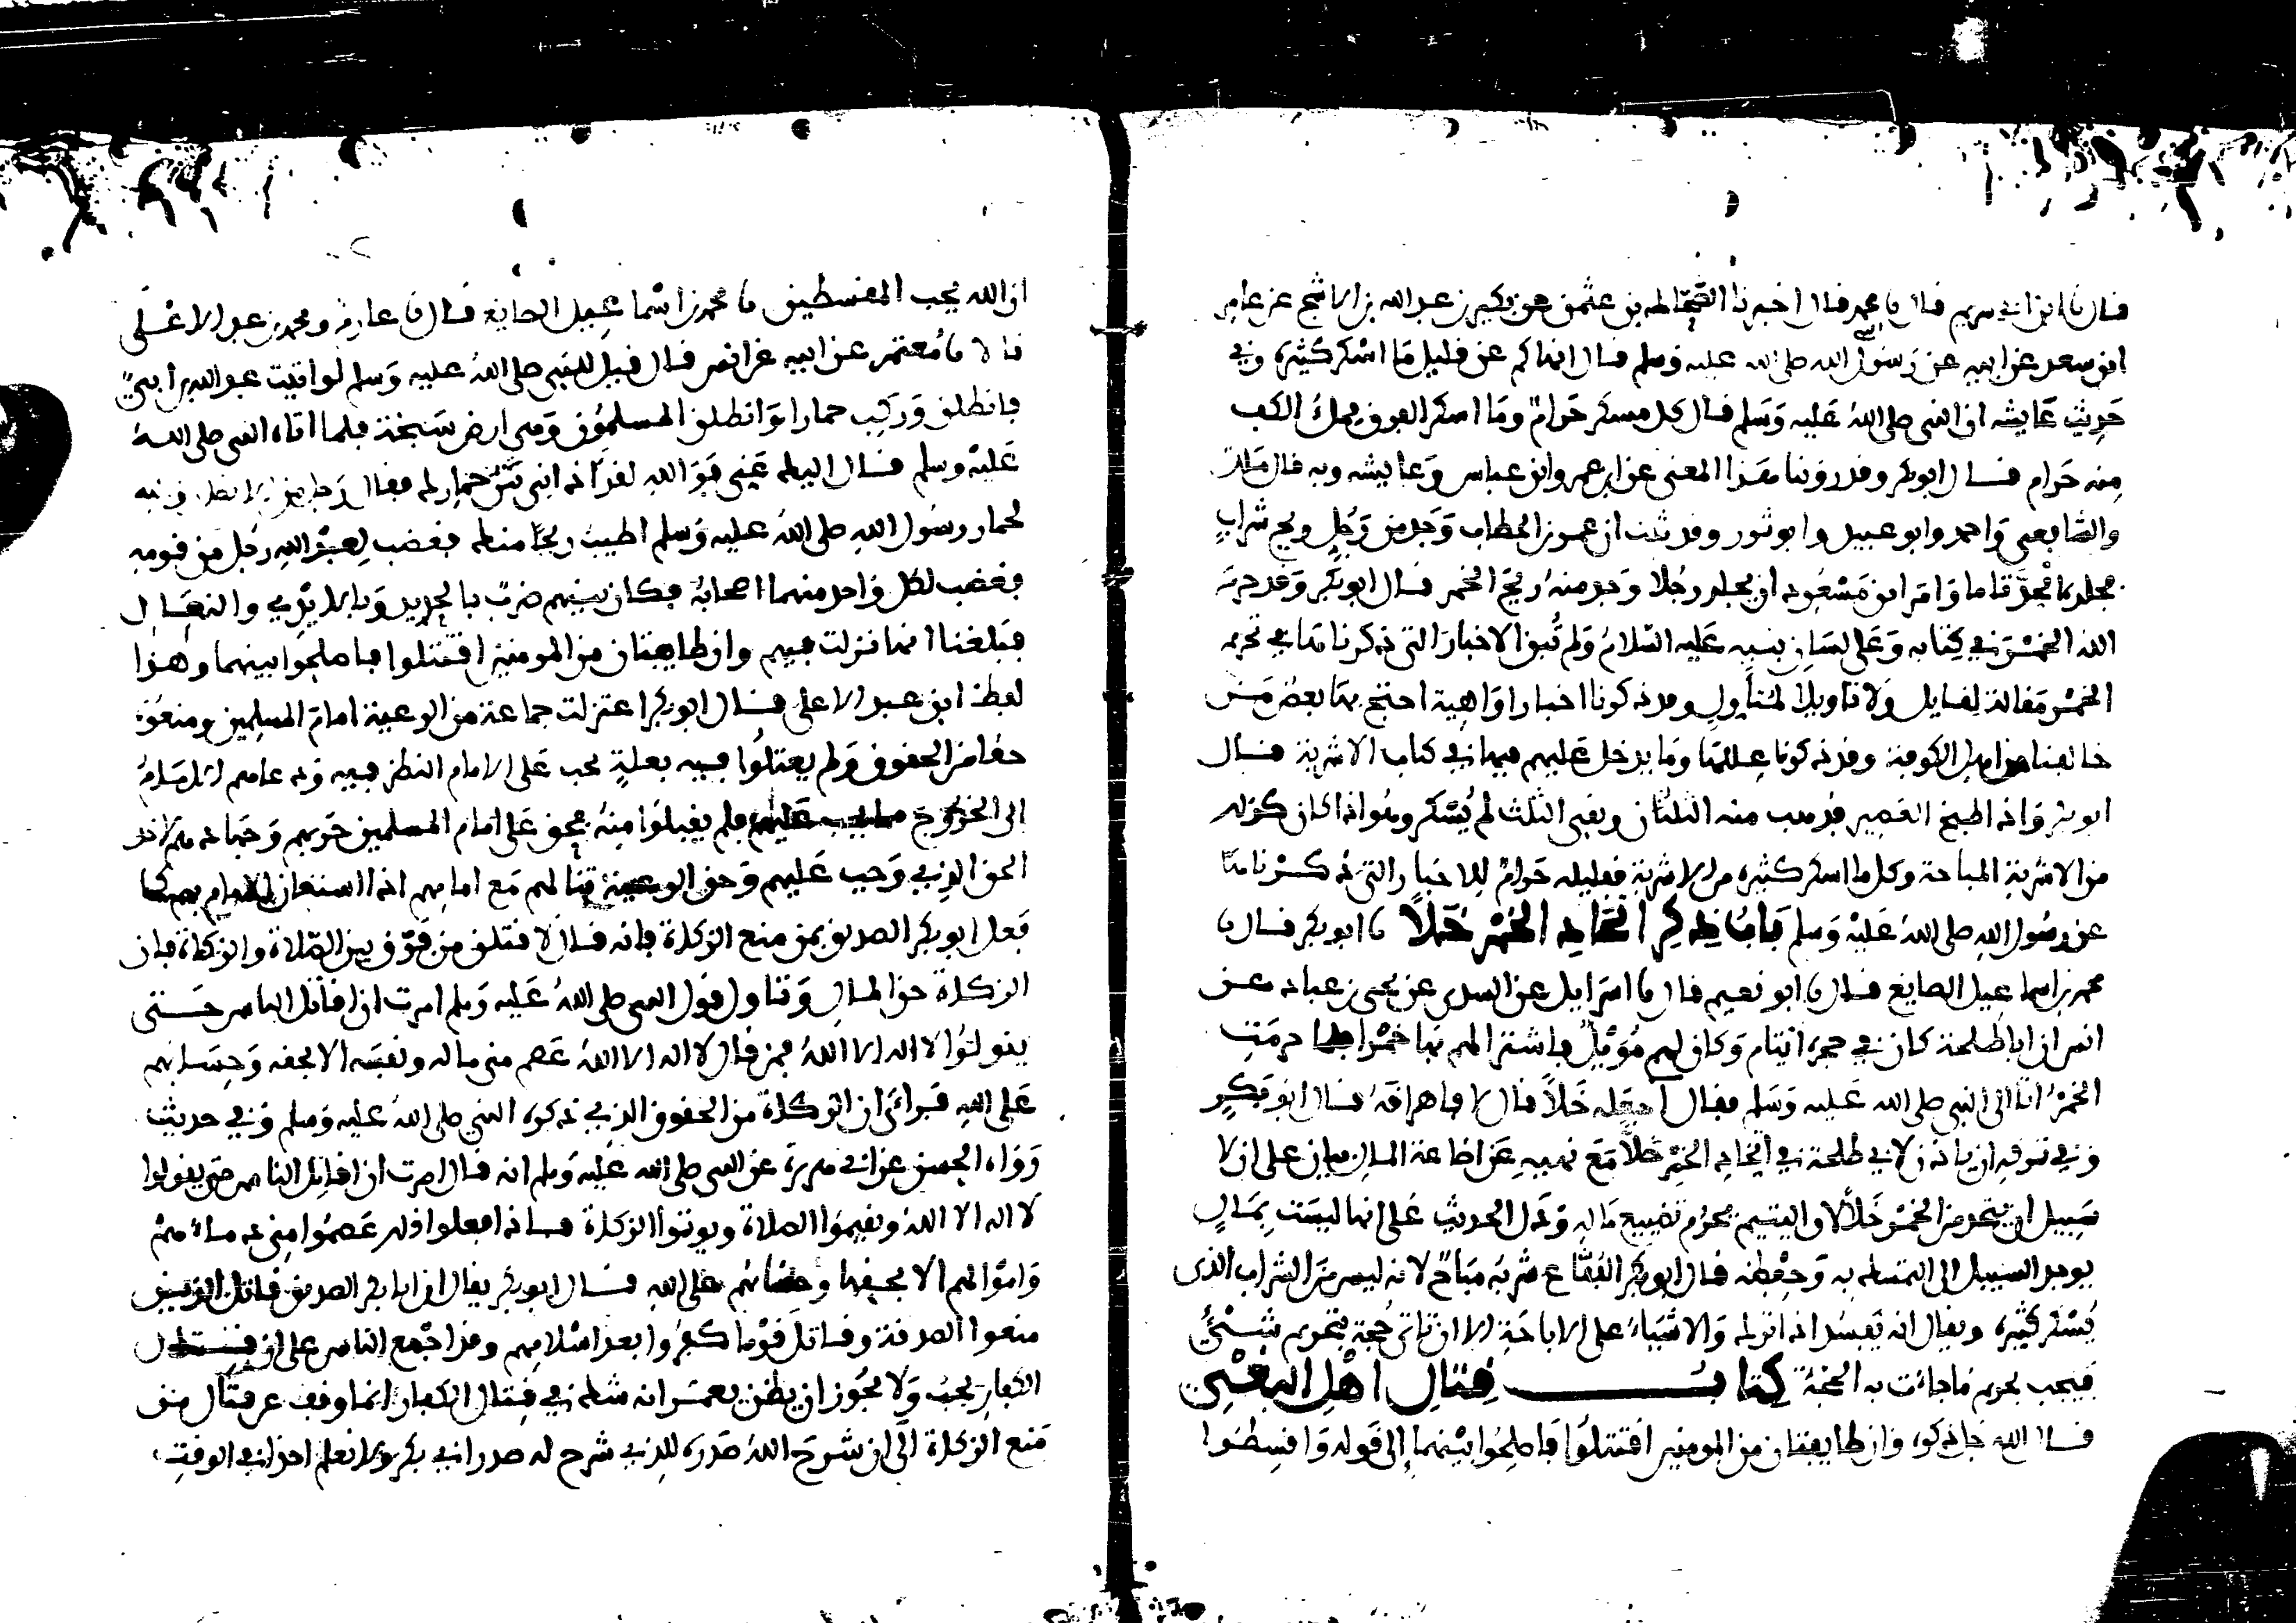 قال نا ابن ابي مريم قال نا محمد قال اخبرنا الضحاك بن عثمن عن بكير بن عبد الله بن الاشج عن عامر
ابن سعد عن ابيه عن رسول الله صلى الله عليه وسلم قال انهاكم عن قليل ما اسكر كثيره وفي
حديث عايشه ان النبي صلى الله عليه وسلم قال كل مسكر حرام وما اسكر الفرق فملء الكف
منه حرام قال ابو بكر وقد روينا هذا المعنى عن ابن عمر وابن عباس وعايشه وبه قال ملك
والشافعي واحمد وابو عبيد وابو ثور وقد ثبت ان عمر بن الخطاب وجد من رجل ريح شراب
فجلده الحد تاما وامر ابن مسعود ان يجلد رجلا وجد منه ريح الخمر قال ابو بكر وقد حرم
الله الخمر في كتابه وعلى لسان نبيه عليه السلام ولم تبق الاخبار التي ذكرناها في تحريم
الخمر مقالة لقايل ولا تاويلا لمتاول وقد ذكرنا اخبارا واهية احتج بها بعض من
خالفنا من اهل الكوفة وقد ذكرنا عللها وما يدخل عليهم فيها في كتاب الاشربة قال
ابو بكر واذا طبخ العصير فذهب منه الثلثان وبقي الثلث لم يسكر وهو اذا كان كذلك
من الاشربة المباحة وكل ما اسكر كثيره من الاشربة فقليله حرام للاخبار التي ذكرناها
عن رسول الله صلى الله عليه وسلم باب ذكر اتخاذ الخمر خلا نا ابو بكر قال نا
محمد بن اسماعيل الصايغ قال نا ابو نعيم قال نا اسرايل عن السدي عن يحيى بن عباد عن
انس ان ابا طلحة كان في حجره ايتام وكان لهم مويل فاشترا لهم بها خمرا فلما حرمت
الخمر اتا الى النبي صلى الله عليه وسلم فقال اجعله خلا قال لا فاهراقه قال ابو بكر
وفي توقيه ان ياذن لابي طلحة في اتخاذ الخمر خلا مع نهيه عن اضاعة المال بيان على ان لا
سبيل ان يتخذ من الخمر خلا لا واليتيم يحرم تضييع ماله ودل الحديث على انها ليست بمال
يوجد السبيل الى التمسك به وحفظه قال ابو بكر الفقاع شربه مباح لانه ليس من الشراب الذي
يسكر كثيره ويقال انه يفسد اذا ترك والاشياء على الاباحة الا ان تاتي حجة بتحريم شيء
فيجب تحريم ما جاءت به الحجة كتاب قتال اهل البغي
قال الله جل ذكره وان طايفتان من المومنين اقتتلوا فاصلحوا بينهما الى قوله واقسطوا
ان الله يحب المقسطين نا محمد بن اسماعيل الصايغ قال نا عارم ومحمد بن عبد الاعلى
قالا نا معتمر عن ابيه عن انس قال قيل للنبي صلى الله عليه وسلم لو اتيت عبد الله بن ابي
فانطلق وركب حمارا وانطلق المسلمون وهي ارض سبخة فلما اتاه النبي صلى الله
عليه وسلم قال اليك عني فو الله لقد آذاني نتن حمارك فقال رجل من
لحمار رسول الله صلى الله عليه وسلم اطيب ريحا منك فغضب لعبد الله رجل من قومه
فغضب لكل واحد منهما اصحابه فكان بينهم ضرب بالجريد وبالايدي والنعال
فبلغنا انها نزلت فيهم وان طايفتان من المومنين اقتتلوا فاصلحوا بينهما وهذا
لفظ ابن عبد الاعلى قال ابو بكر اعتزلت جماعة من الرعية امام المسلمين ومنعوه
حقا من الحقوق ولم يعتلوا فيه بعلة يجب على الامام النظر فيه ودعاهم الامام
الى الخروج مما يجب عليهم فلم يقبلوا منه فحق على امام المسلمين حربهم وجهادهم لاخذ
الحق الذي وجب عليهم وحق الرعية قتالهم مع امامهم اذا استعان الامام بهم كما
فعل ابو بكر الصديق بمن منع الزكاة فانه قال لاقتلن من فرق بين الصلاة والزكاة فان
الزكاة حق المال وتاول قول النبي صلى الله عليه وسلم امرت ان اقاتل الناس حتى
يقولوا لا اله الا الله فمن قال لا اله الا الله عصم مني ماله ونفسه الا بحقه وحسابهم
على الله فراى ان الزكاة من الحقوق الذي ذكره النبي صلى الله عليه وسلم وفي حديث
رواه الحسن عن ابي هريرة عن النبي صلى الله عليه وسلم انه قال امرت ان اقاتل الناس حتى يقولوا
لا اله الا الله ويقيموا الصلاة ويوتوا الزكاة فاذا فعلوا ذلك عصموا مني دماءهم
واموالهم الا بحقها وحسابهم على الله قال ابو بكر يقال ان ابا بكر الصديق قاتل الذين
منعوا الصدقة وقاتل قوما كفروا بعد اسلامهم وقد اجمع الناس على ان قتال
الكفار يجب ولا يجوز ان يظن بعمر انه شك في قتال الكفار انما وقف عن قتال من
منع الزكاة الى ان شرح الله صدره للذي شرح له صدر ابي بكر ولا نعلم احدا في الوقت